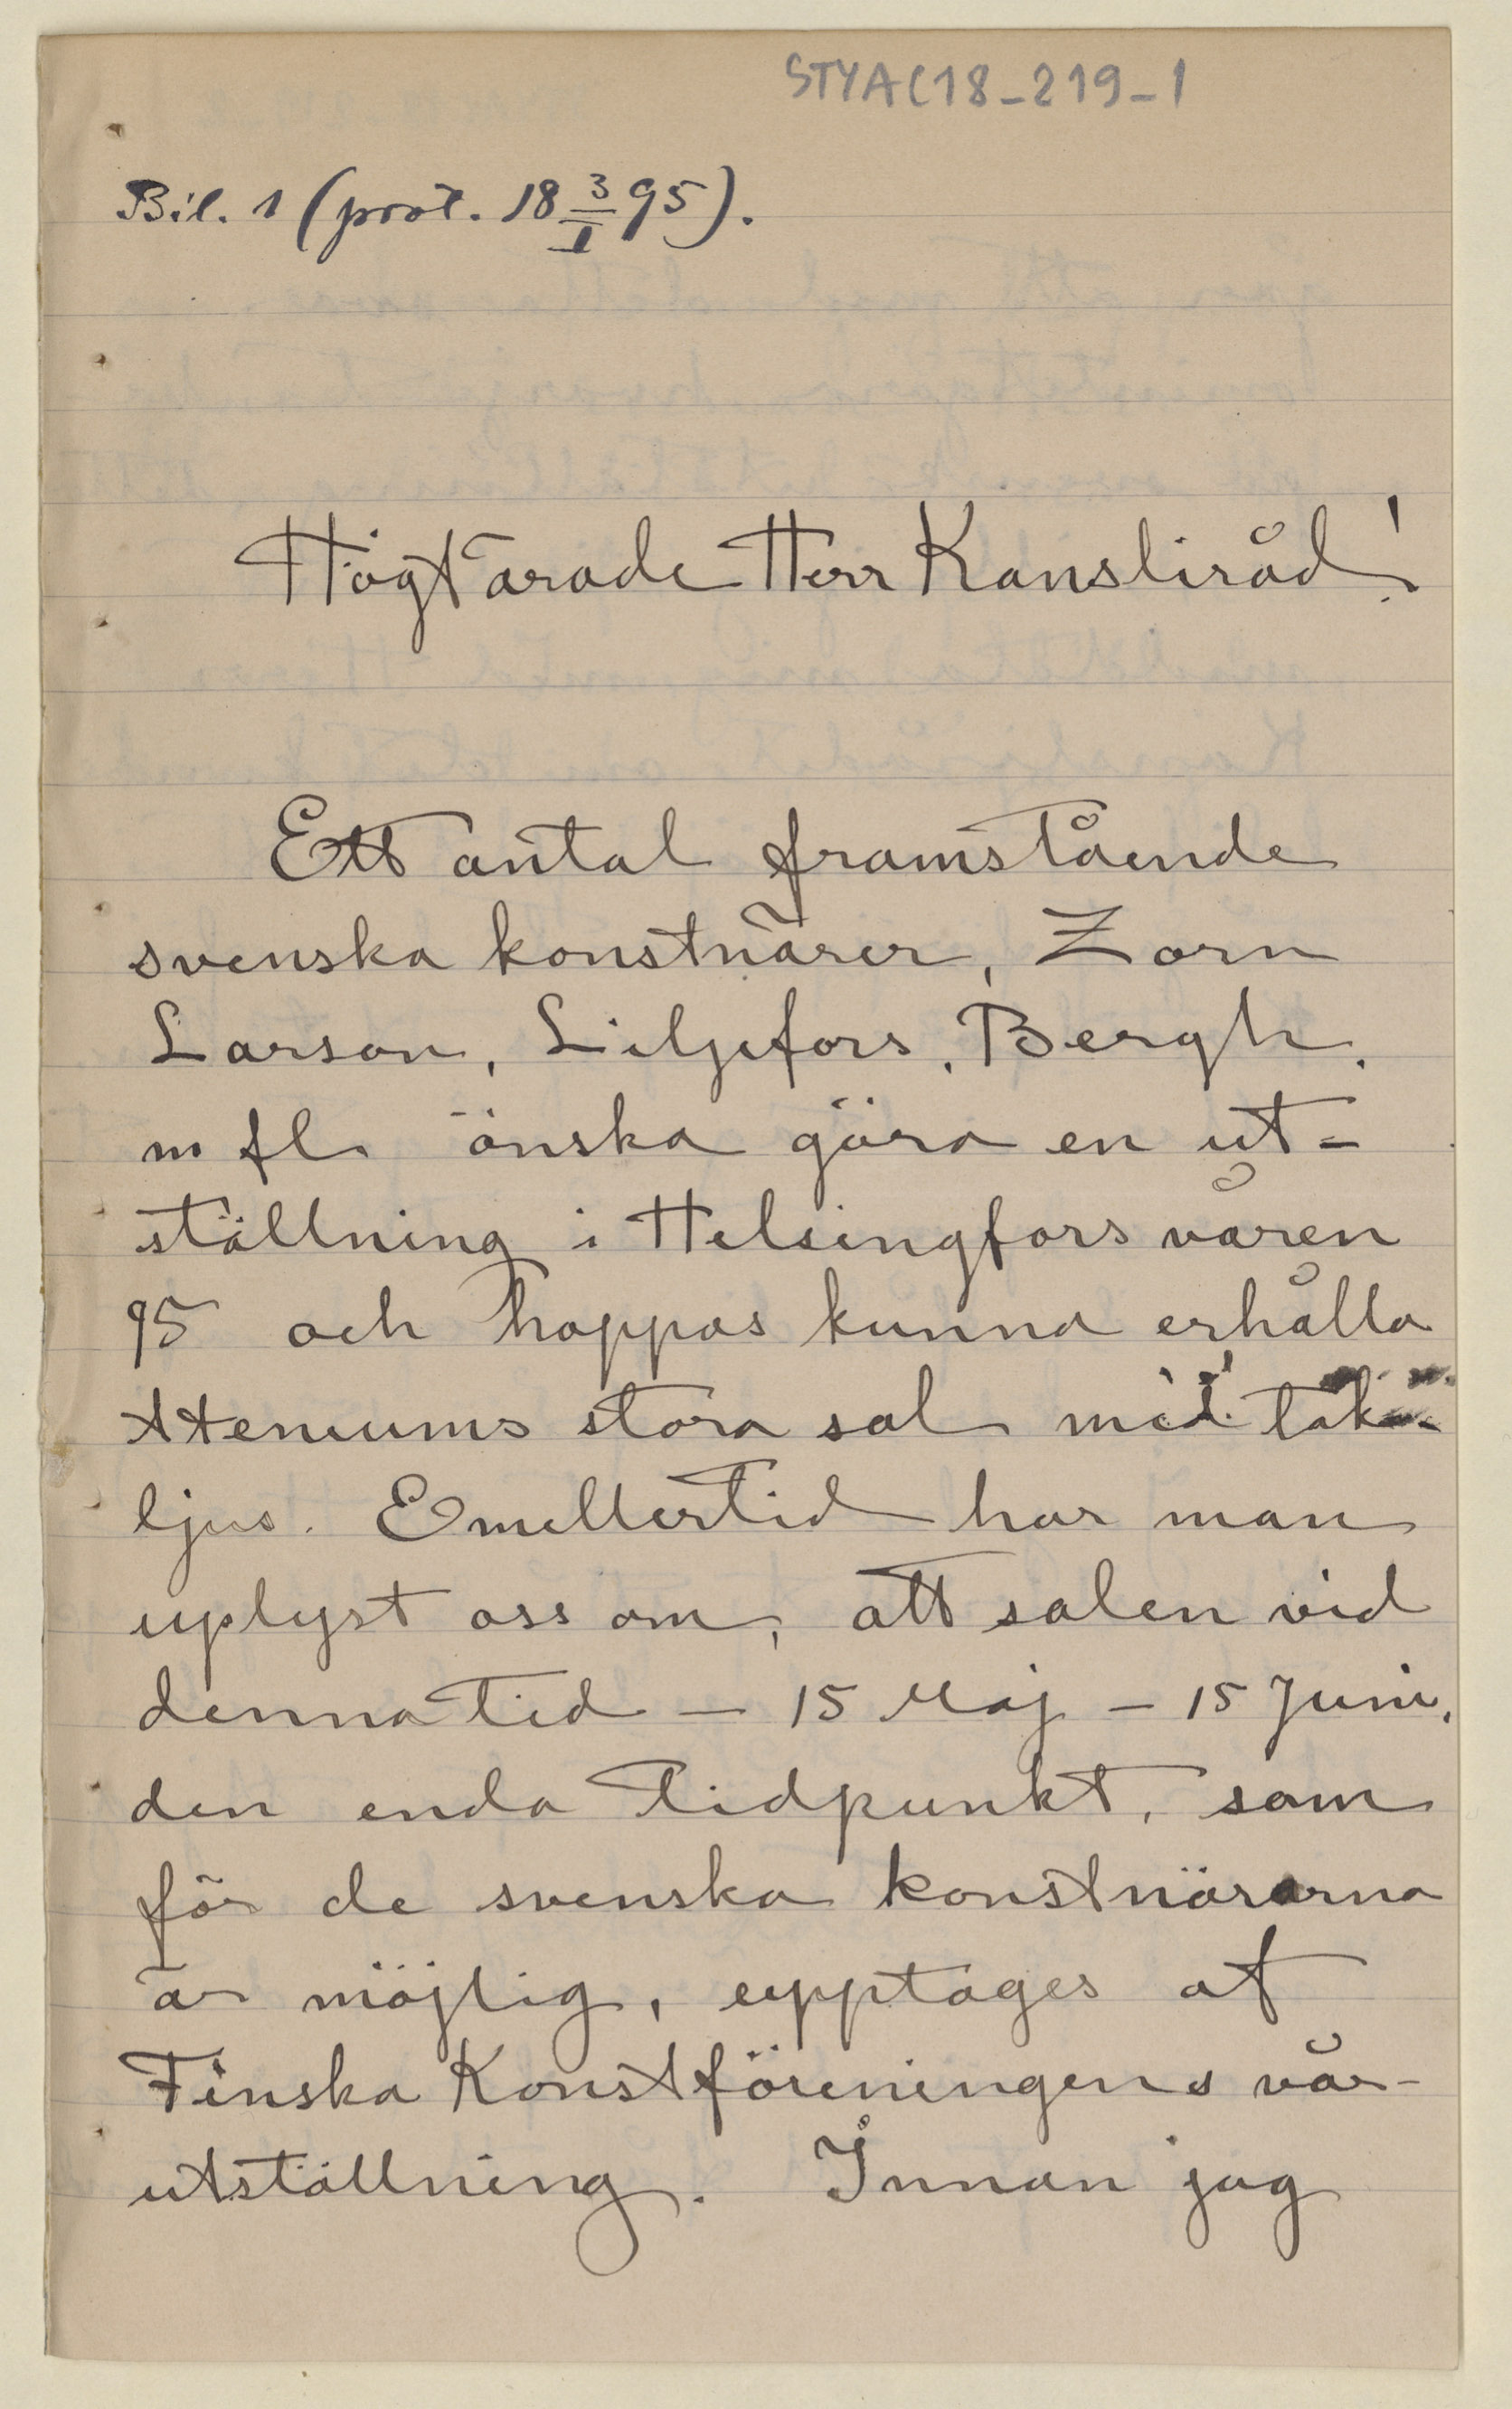 STYA C18-219-1
Bil. 1 (prot. 18 3/I 95).
Högtärade Herr Kansliråd!
Ett antal framstående
svenska konstnärer, Zorn
Larson, Liljefors, Bergh,
m fl. önska göra en ut-
ställning i Helsingfors våren
95 och hoppas kunna erhålla
Ateneums stora sal med tak-
ljus. Emellertid har man
uplyst oss om, att salen vid
denna tid – 15 Maj – 15 Juni,
den enda tidpunkt, som
för de svenska konstnärerna
är möjlig, upptages af
Finska Konstföreningens vår-
utställning. Innan jag